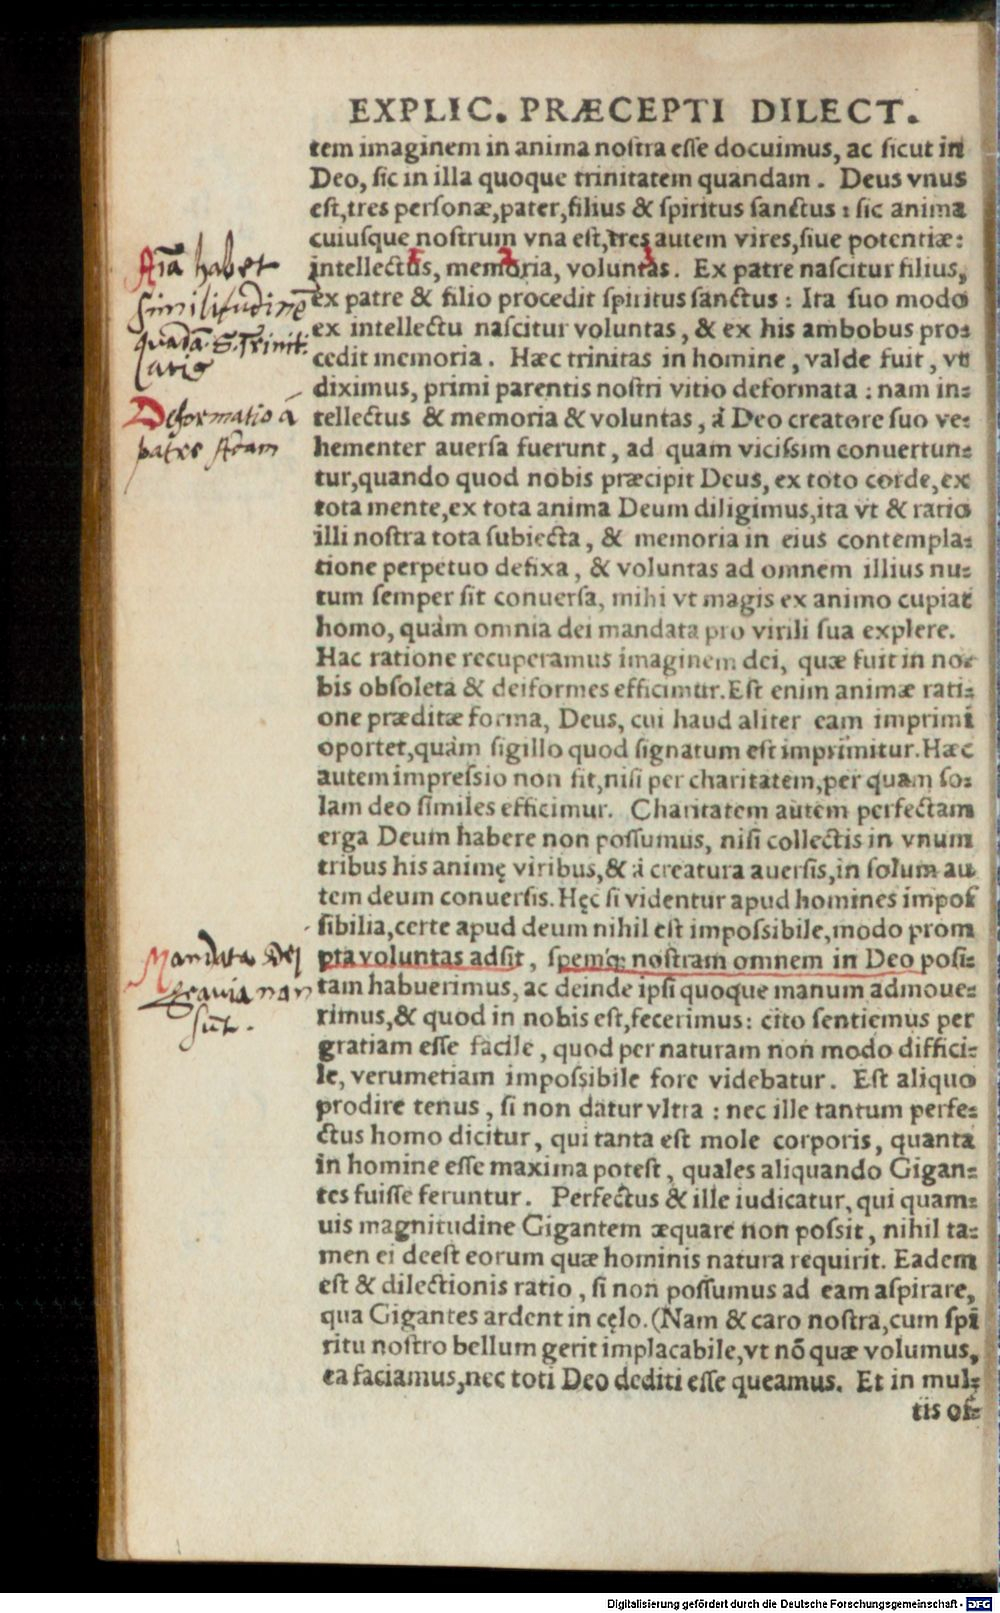 EXPLIC. PRÆCEPTI DILECT.
tem imaginem in anima noſtra eſſe docuimus, ac ſicut in
Deo, ſic in illa quoque trinitatem quandam. Deus vnus
eſt, tres perſonæ, pater, filius & ſpiritus ſanctus: ſic anima
cuiuſque noſtrum vna eſt, tres autem vires, ſiue potentiæ:
1 2 3
intellectus, memoria, voluntas. Ex patre naſcitur filius,
ex patre & filio procedit ſpiritus ſanctus: Ita ſuo modo
ex intellectu naſcitur voluntas, & ex his ambobus pro⸗
cedit memoria. Hæc trinitas in homine, valde fuit, vti
diximus, primi parentis noſtri vitio deformata: nam in⸗
tellectus & memoria & voluntas, á Deo creatore ſuo ve⸗
hementer auerſa fuerunt, ad quam viciſsim conuertun⸗
tur, quando quod nobis præcipit Deus, ex toto corde, ex
tota mente, ex tota anima Deum diligimus, ita vt & ratio
illi noſtra tota ſubiecta, & memoria in eius contempla⸗
tione perpetuo defixa, & voluntas ad omnem illius nu⸗
tum ſemper ſit conuerſa, nihil vt magis ex animo cupiat
homo, quàm omnia dei mandata pro virili ſua explere.
Hac ratione recuperamus imaginem dei, quæ fuit in no⸗
bis obſoleta & deiformes efficimur. Eſt enim animæ rati⸗
one præditæ forma, Deus, cui haud aliter eam imprimi
oportet, quàm ſigillo quod ſignatum eſt imprimitur. Hæc
autem impreſsio non fit, niſi per charitatem, per quam ſo⸗
lam deo ſimiles efficimur. Charitatem autem perfectam
erga Deum habere non poſſumus, niſi collectis in vnum
tribus his animę viribus, & á creatura auerſis, in ſolum au
tem deum conuerſis. Hęc ſi videntur apud homines impoſ
ſibilia, certe apud deum nihil eſt impoſsibile, modo prom
pta voluntas adſit, ſpemq; noſtram omnem in Deo poſi⸗
tam habuerimus, ac deinde ipſi quoque manum admoue⸗
rimus, & quod in nobis eſt, fecerimus: cito ſentiemus per
gratiam eſſe facile, quod per naturam non modo diffici⸗
le, verumetiam impoſsibile fore videbatur. Eſt aliquo
prodire tenus, ſi non datur vltra: nec ille tantum perfe⸗
ctus homo dicitur, qui tanta eſt mole corporis, quanta
in homine eſſe maxima poteſt, quales aliquando Gigan⸗
tes fuiſſe feruntur. Perfectus & ille iudicatur, qui quam⸗
uis magnitudine Gigantem æquare non poſsit, nihil ta⸗
men ei deeſt eorum quæ hominis natura requirit. Eadem
eſt & dilectionis ratio, ſi non poſſumus ad eam aſpirare,
qua Gigantes ardent in cęlo. (Nam & caro noſtra, cum ſpi
ritu noſtro bellum gerit implacabile, vt nō quæ volumus,
ea faciamus, nec toti Deo dediti eſſe queamus. Et in mul⸗
tis of⸗
Aīa habet
ſimilitudinē
quadā S. Trinit:
tatis
Deformatio á
patre Adam
Mandata Dei
grauia non
sūt.
Digitalisierung gefördert durch die Deutsche Forschungsgemeinschaft - DFG